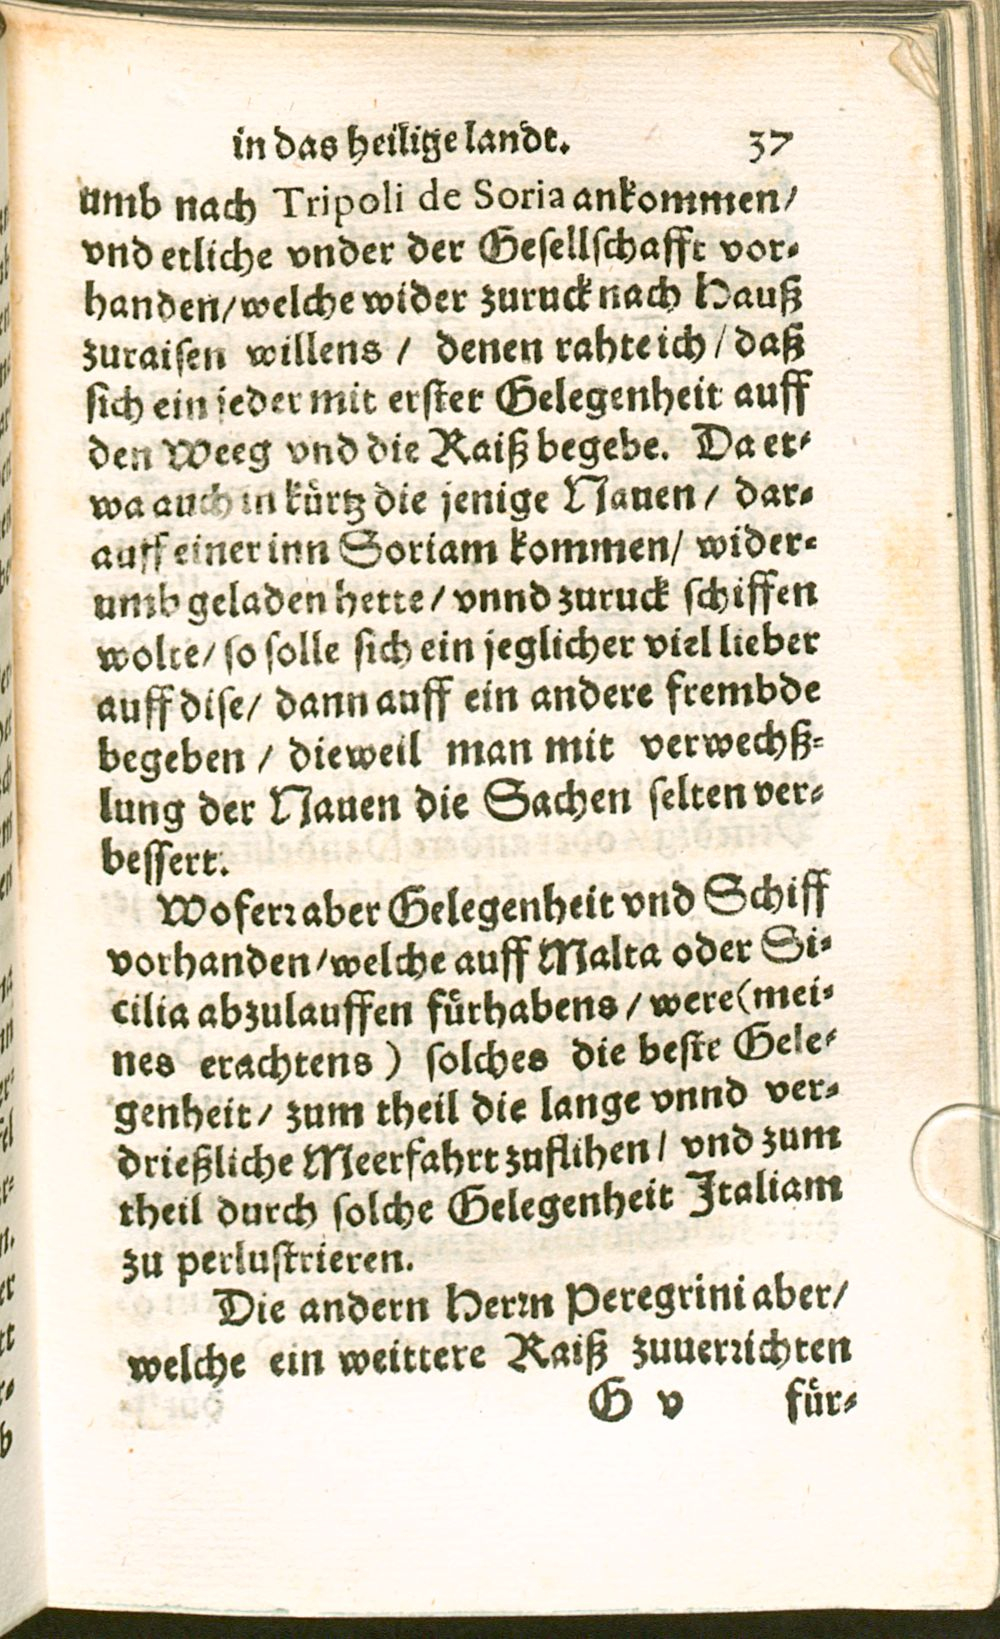 in das heilige landt. 37
umb nach Tripoli de Soria ankommen/
vnd etliche vnder der Gesellschafft vor-
handen/welche wider zuruck nach Hauß
zuraisen willens / denen rahte ich / daß
sich ein jeder mit erster Gelegenheit auff
den Weeg vnd die Raiß begebe. Da et-
wa auch in kürtz die jenige Nauen / dar-
auff einer inn Soriam kommen/ wider-
umb geladen hette / vnnd zuruck schiffen
wolte/ so solle sich ein jeglicher viel lieber
auff dise/ dann auff ein andere frembde
begeben / dieweil man mit verwechß-
lung der Nauen die Sachen selten ver-
bessert.
Woferr aber Gelegenheit vnd Schiff
vorhanden/welche auff Malta oder Si-
cilia abzulauffen fürhabens / were (mei-
nes erachtens) solches die beste Gele-
genheit/ zum theil die lange vnnd ver-
drießliche Meerfahrt zuflihen/ vnd zum
theil durch solche Gelegenheit Italiam
zu perlustrieren.
Die andern Herrn Peregrini aber/
welche ein weittere Raiß zuuerrichten
G v für-